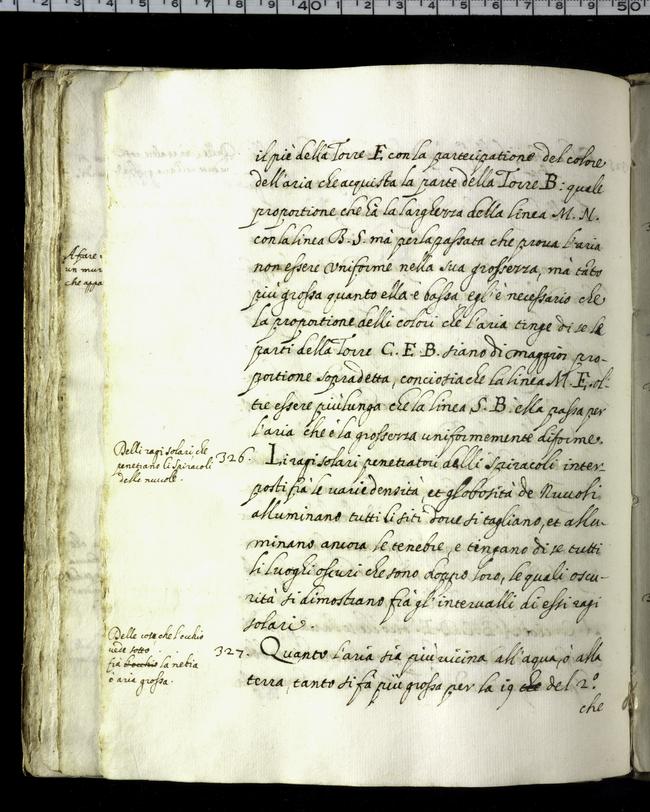 il piè della Torre E con la partecipatione del colore
dell'aria che acquista la parte della Torre B: quale
proportione che hà la larghezza della linea M. N.
con la linea B. S. mà per la passata che prova l'aria
non essere uniforme nella sua grossezza, mà tãto
più grossa quanto ella è bassa egl'è necessario che
la proportione delli colori che l'aria tinge di se le
parti della Torre C. E. B. siano di maggior pro-
portione sopradetta, conciosiache la linea M. E. ol-
tre essere più lunga che la linea S. B. ella passa per
l'aria che è la grossezza uniformemente diforme.
Delli ragi solari, che
penetrano li spiracoli
delle nuvole.
326. Li ragi solari penetratori delli spiracoli inter-
posti frà le varie densità, et globosità de Nuvoli
alluminano tutti li siti dove si tagliano, et allu-
minano ancora le tenebre, e tengano di se tutti
li luoghi oscuri che sono doppo loro, le quali oscu-
rità si dimostrano frà gl'intervalli di essi ragi
solari.
Delle cose che l'ochio
vede sotto
frà l'ochio la nebia
ò aria grossa.
327. Quanto l'aria sia più vicina all'aqua, ò alla
terra, tanto si fà più grossa per la 19 che del 2º.
che
A fare
un mur
che appa